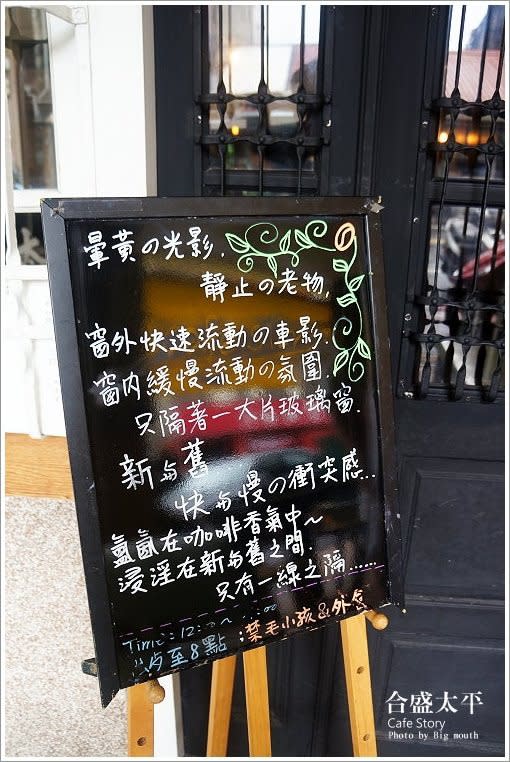 暈黃の光影.
靜止の老物.
窗外快速流動の車影.
窗內緩慢流動の氛圍.
只隔著一大片玻璃窗.
新与舊
快与慢の衝突感...
氤氳在咖啡香氣中~
浸淫在新与舊之間.
只有一線之隔......
Time: 12:
至8點 : 禁毛小孩&外食
合盛太平
Cafe Story
Photo by Big mouth